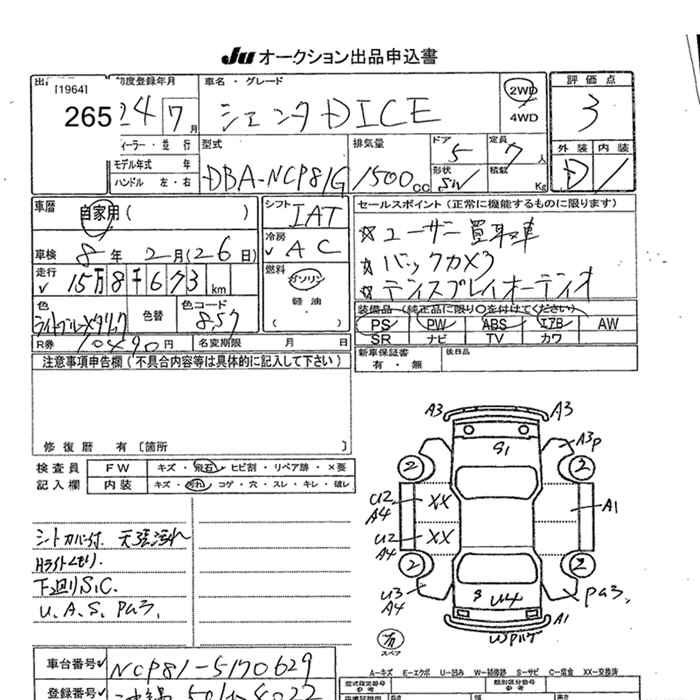 Ju オークション出品申込書
[1964]
265
初度登録年月
24 7月
車名・グレード
シエンタ DICE
2WD
4WD
評価点
3
外装 内装
D 1
ィーラー・並行
モデル年式 年
ハンドル 左・右
型式
DBA-NCP81G
排気量
1500cc
ドア 5
形状 SW
定員 7人
積載 Kg
車歴 自家用( )
シフト IAT
車検 8年 2月(26日)
冷房 AC
走行 15万8千673km
燃料
ガソリン
軽油
( )
色
ライトブルーメタリック
色替
色コード
8S7
R券 10490円
名変期限 月 日
セールスポイント(正常に機能するものに限ります)
☆ ユーザー買取車
☆ バックカメラ
☆ ディスプレイオーディオ
装備品(純正品に限り○を付けてください)
PS PW ABS エアB AW
SR ナビ TV カワ
新車保証書
有・無
後日品
注意事項申告欄(不具合内容等は具体的に記入して下さい)
修復歴 有〔箇所 〕
検査員
記入欄
FW キズ・飛石・ヒビ割・リペア跡・×要
内装 キズ・汚れ・コゲ・穴・スレ・キレ・破レ
シートカバー付. 天張汚れ
Hライトくもり.
下廻りS.C.
U.A.S. Pa3.
A3 A3
S1
A3P
2 2
U2
A4
XX
A1
U2
A4
XX
2 2
U3
A4
Pa3.
S U4
A1
WPバケ
スペア
A−キズ E−エクボ U−凹み W−補修跡 S−サビ C−腐食 XX−交換済
車台番号 NCP81-5170629
登録番号
型式指定番号
参考
類別区分番号
参考